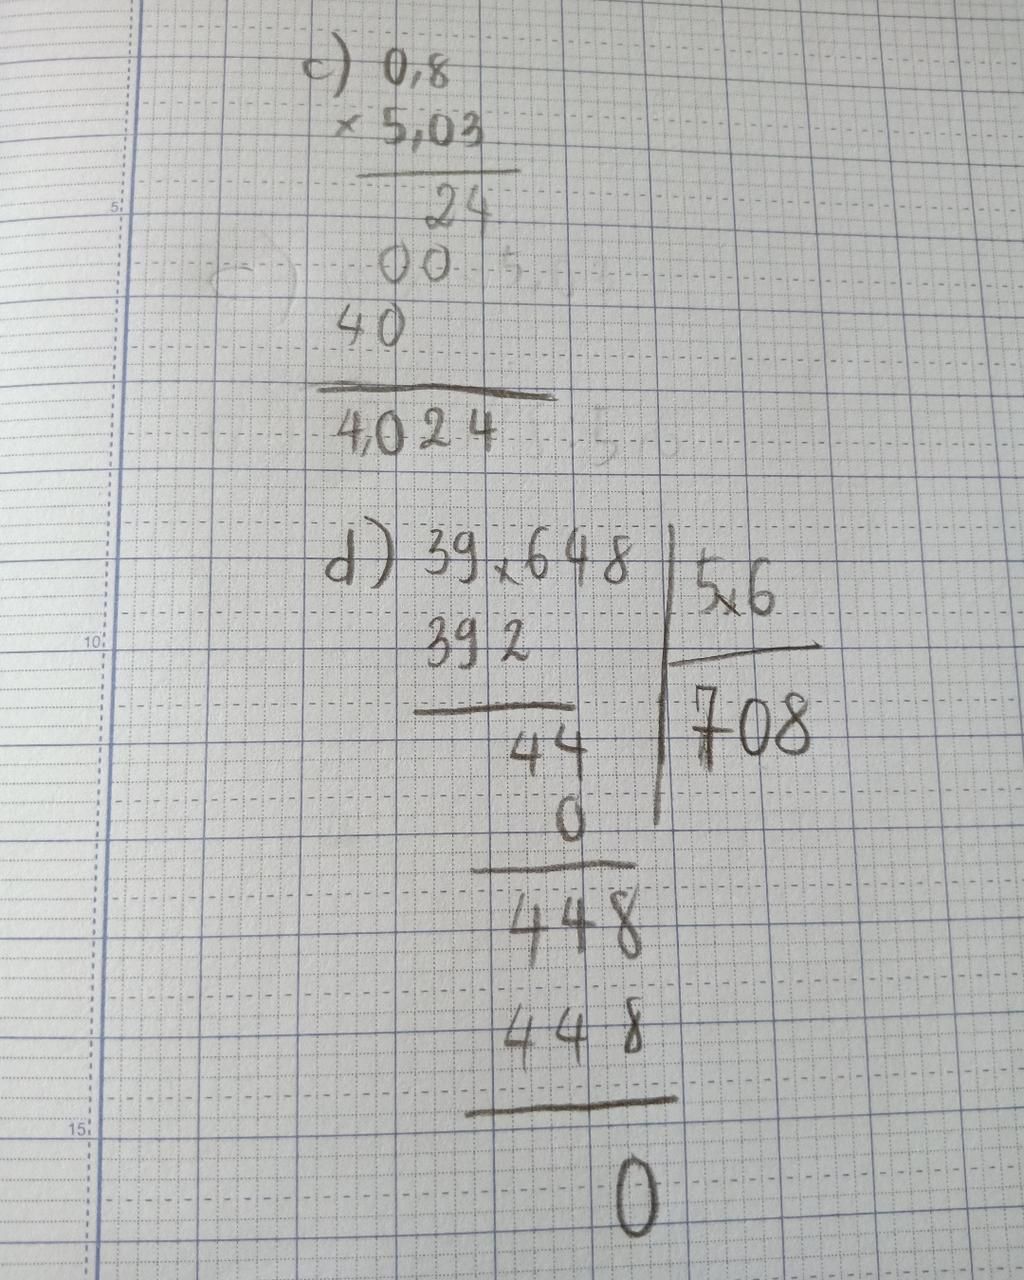 c) 0,8
× 5,03
24
00
40
4,024
d) 39,648 | 5,6
392
708
44
0
448
448
0
5
10
15